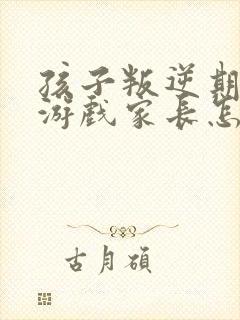 孩子叛逆期
游戏家长怎
古月硕